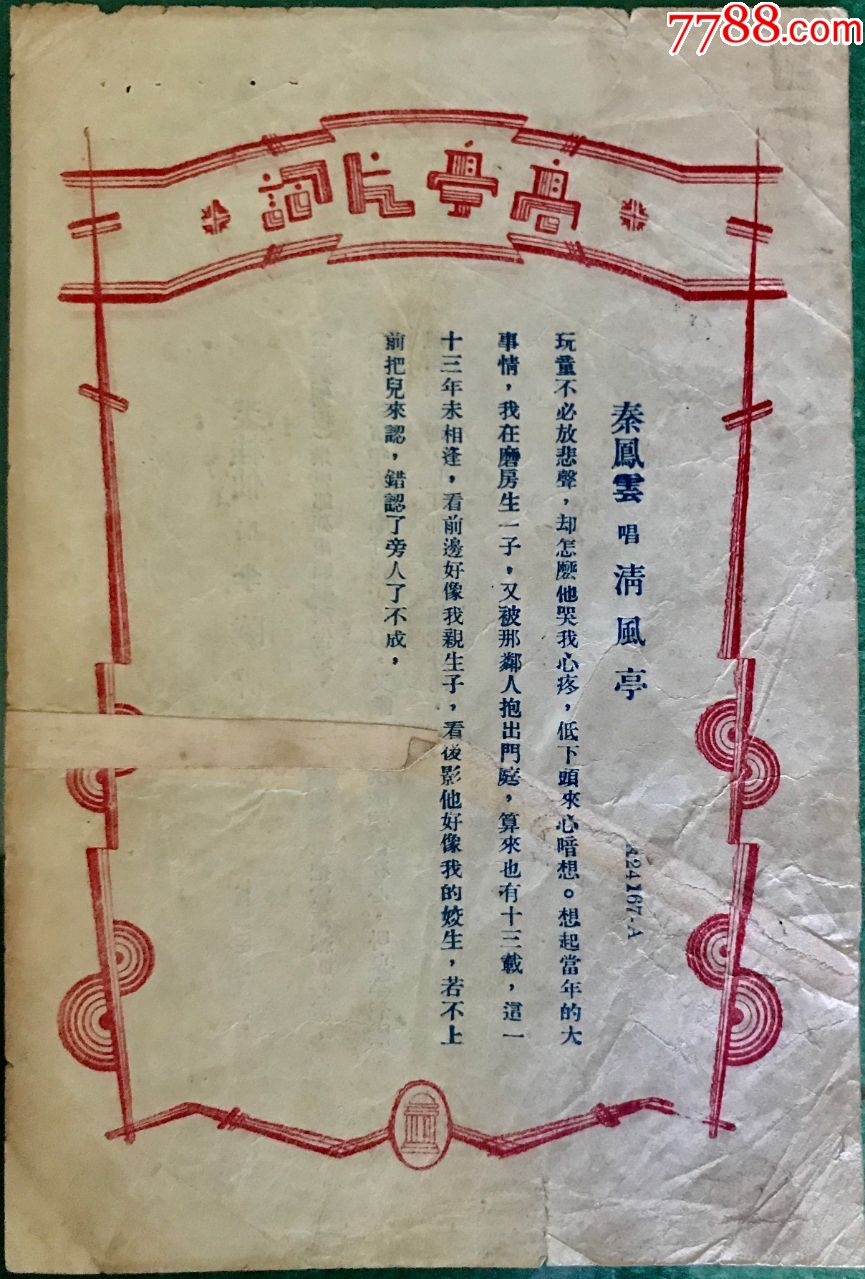 7788.com
高亭片詞
秦鳳雲 唱 清風亭
A24167-A
玩童不必放悲聲，却怎麼他哭我心疼，低下頭來心暗想。想起當年的大
事情，我在磨房生一子，又被那鄰人抱出門庭，算來也有十三載，這一
十三年未相逢，看前邊好像我親生子，看後影他好像我的姣生，若不上
前把兒來認，錯認了旁人了不成，